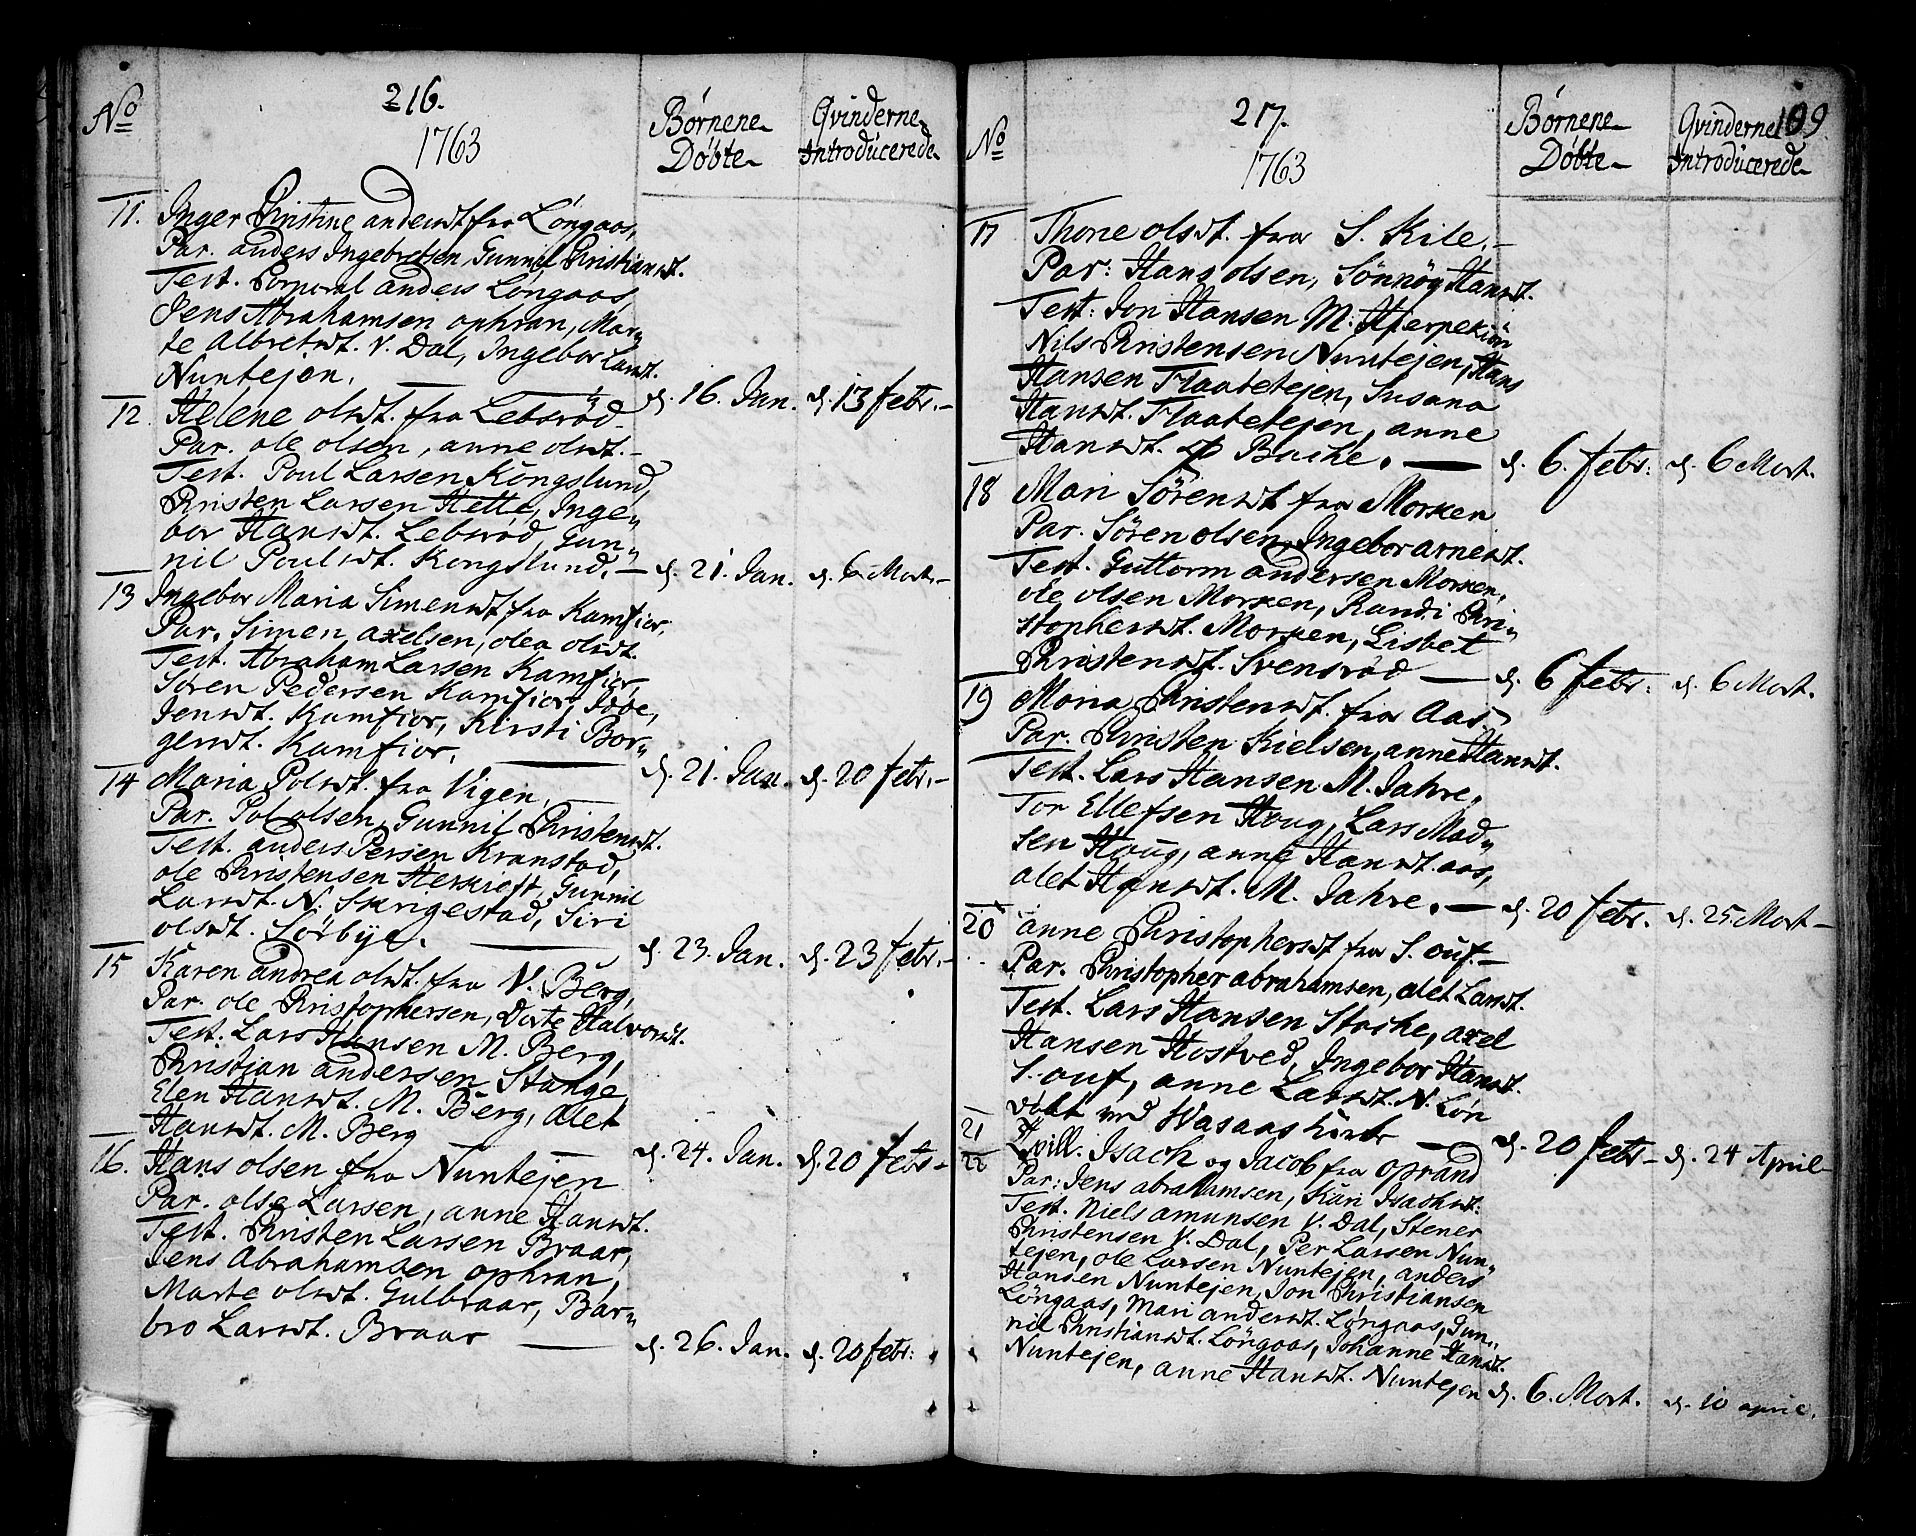 216.
1763
No
Børnene
Døbte
Qvinderne
Introducerede
11. Inger Christine andersdt fra Løngaas,
Par. anders Ingebretsen, Gunnil Christiansdt.
Test. Corporal anders Løngaas
Jens Abrahamsen ophran, Mar-
te Albretsdt. V. Dal, Ingebor Larsdt.
Nuntejen. d. 16. Jan. d. 13 febr.
12. Helene olsdt. fra Lebsrød
Par. ole olsen, anne olsdt.
Test. Poul Larsen Kongslund,
Christen Larsen Hette, Inge-
bor Hansdt. Lebsrød, Gun-
nil Poulsdt. Kongslund. d. 21. Jan. d. 6. Mart.
13 Ingebor Maria Simensdt fra Kamfior,
Par. Simen axelsen, olea olsdt.
Test. Abraham Larsen Kamfior
Søren Pedersen Kamfior,
Jensdt. Kamfior, Kirsti Bor-
gersdt. Kamfior. d. 21. Jan. d. 20 febr.
14 Maria Polsdt. fra Vigen
Par. Pol olsen, Gunnil Christensdt.
Test. anders Persen Kranstad,
ole Christensen, Gunnil
Larsdt. N. Skrigestad, Siri
olsdt. Sørbye. d. 23. Jan. d. 23 febr.
15 Karen andrea olsdt. fra V. Berg,
Par. ole Christophersen, Dorte Halvorsdt.
Test. Lars Hansen M. Berg,
Christian andersen Stange,
Elen Hansdt. M. Berg, alet
Hansdt. M. Berg d. 24. Jan. d. 20 febr
16. Hans olsen fra Nuntejen
Par. ole Larsen, anne Hansdt.
Test. Christen Larsen Braar,
Jens Abrahamsen ophran,
Marte olsdt. Gulbraar, Bar-
bro Larsdt. Braar d. 26. Jan. d. 20 febr:
217.
1763
109
No
Børnene
Døbte
Qvinderne
Introducerede
17 Thore olsdt. fra S. Kile.
Par: Hans olsen, Sønnøy Hansdt.
Test: Jon Hansen M:
Nils Christensen Nuntejen, Hans
Hansen Flaatetejen, Susana
Hansdt. Flaatetejen, anne
Hansdt. Bache. d. 6. febr: d. 6 Mart.
18 Mari Sørensdt fra Morken
Par. Søren olsen, Ingebor arnesdt.
Test. Guttorm andersen Morken,
ole olsen Morken, Randi Chri-
stophersdt. Morken, Lisbet
Christensdt. Svensrød d. 6 febr: d. 6 Mart.
19 Maria Christensdt. fra Aas.
Par. Christen Kielsen, anne Hansdt.
Test. Lars Hansen M. Jahre,
Tor Ellefsen Haug, Lars Mad-
sen Haug, anne Hansdt. aas,
alet Hansdt. M. Jahre. d. 20 febr. d. 25. Mart
20 anne Christophersdt fra S. ouf.
Par. Christopher abrahamsen, alet Larsdt.
Test. Lars Hansen Stache, axel
Hansen Hostved, Ingebor Hansdt.
S. ouf, anne Larsdt. N. Løn
døbt ved Wasaas d. 20 febr d. 24 April
21
22 Tvill. Isach og Jacob fra oprand
Par: Jens abrahamsen, Kari Isachsdt.
Test. Niels amunsen V. Dal, Stener
Christensen V. Dal, Per Larsen Nun-
tejen, ole Larsen Nuntejen, anders
Hansen Nuntejen, Jon Christiansen
Løngaas, Mari andersdt. Løngaas, Gun-
nil Christiansdt. Løngaas, Johanne Hansdt.
Nuntejen, anne Hansdt. Nuntejen d. 6. Mart. d. 10 april.